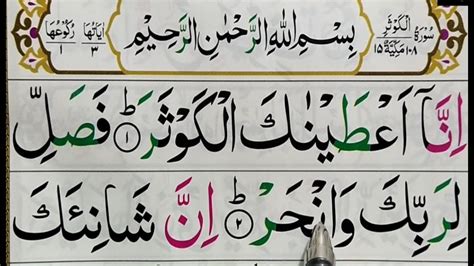 سُوْرَةُ الْكَوْثَرِ ١٠٨ مَكِّيَّةٌ ١٥
بِسْمِ اللهِ الرَّحْمٰنِ الرَّحِيْمِ
اٰيَاتُهَا ٣ رُكُوْعُهَا ١
اِنَّاۤ اَعْطَيْنٰكَ الْكَوْثَرَ ؕ ١ فَصَلِّ
لِرَبِّكَ وَانْحَرْ ؕ ٢ اِنَّ شَانِئَكَ